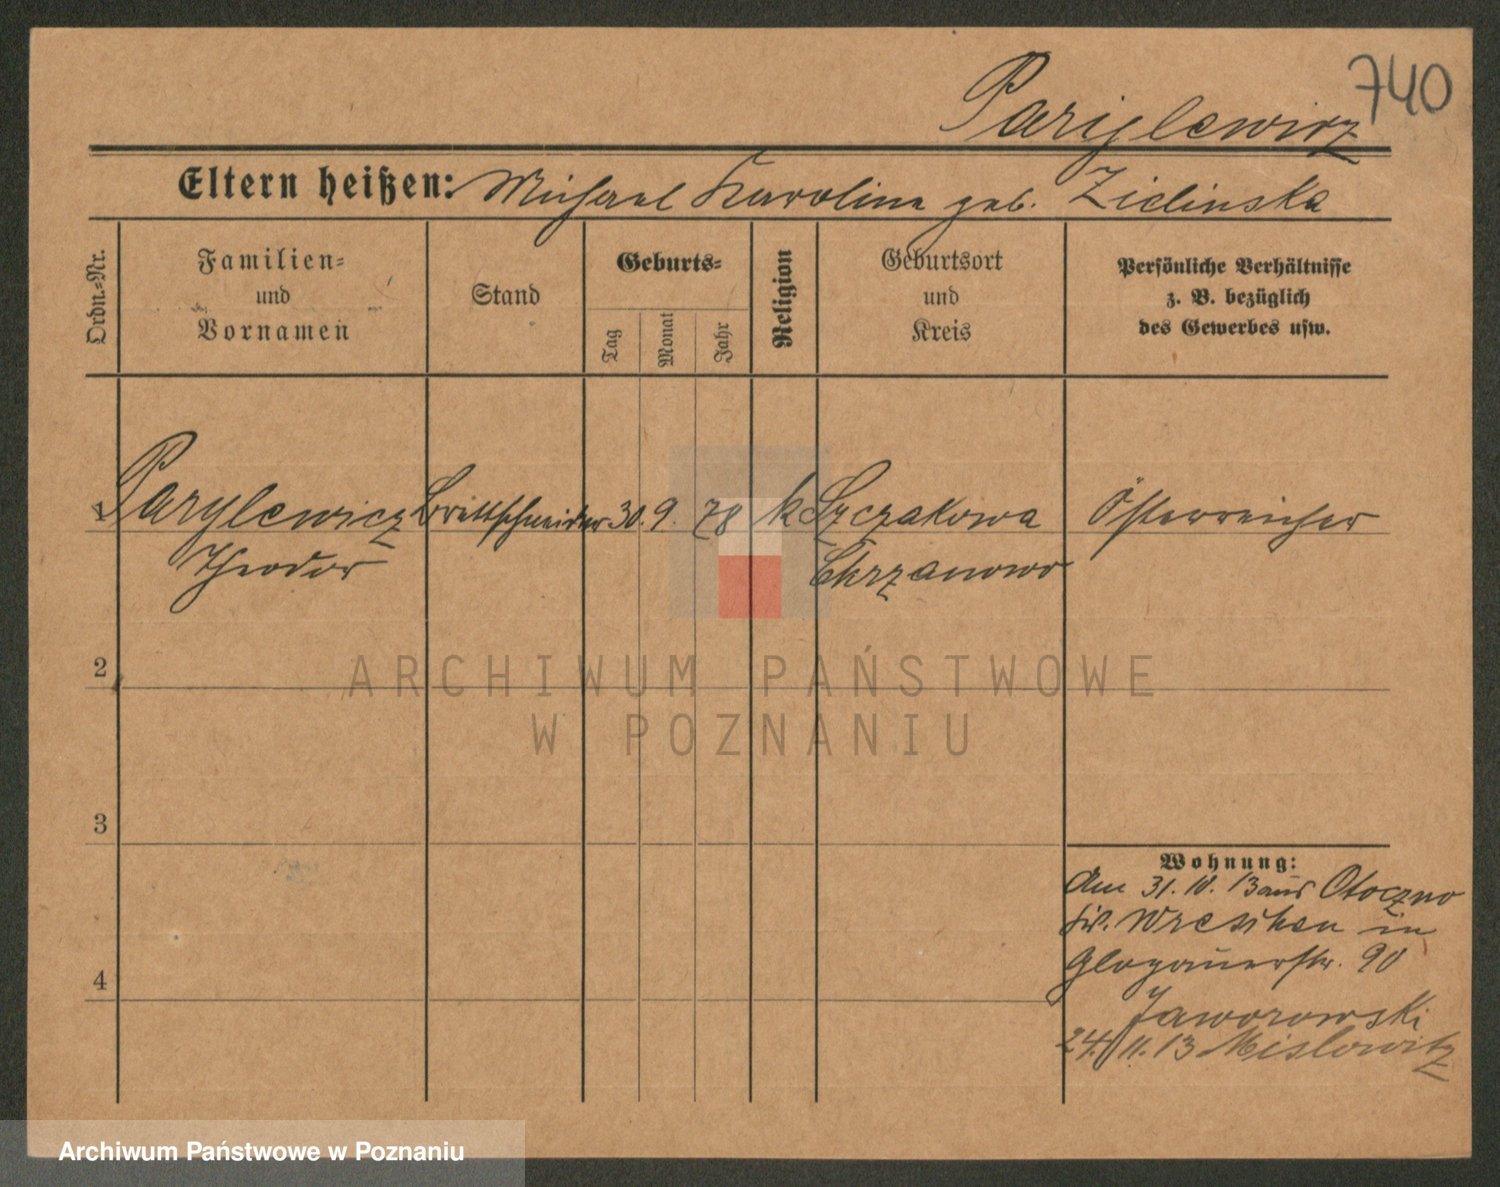 740
Parylewicz
Eltern heißen: Michael Karolina geb. Zielinska
Ordn.-Nr.
Familien-
und
Vornamen
Stand
Geburts-
Tag
Monat
Jahr
Religion
Geburtsort
und
Kreis
Persönliche Verhältnisse
z. B. bezüglich
des Gewerbes usw.
1 Parylewicz Brettschneider 30. 9. 78 k Szczakowa Österreicher
Theodor Chrzanowo
2
3
4
Wohnung:
Am 31. 10. 13 aus Otoczno
Kr. Wreschen in
Glogauerstr. 90
Jaworowski
24. 11. 13 Mislowitz
ARCHIWUM PAŃSTWOWE
W POZNANIU
Archiwum Państwowe w Poznaniu